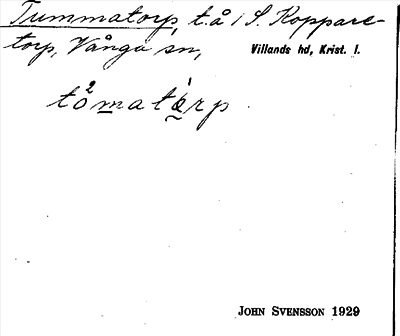 Tummatorp, t.å / S. Koppare-
torp, Vånga sn, Villands hd, Krist. l.
to²matò̰rp
JOHN SVENSSON 1929